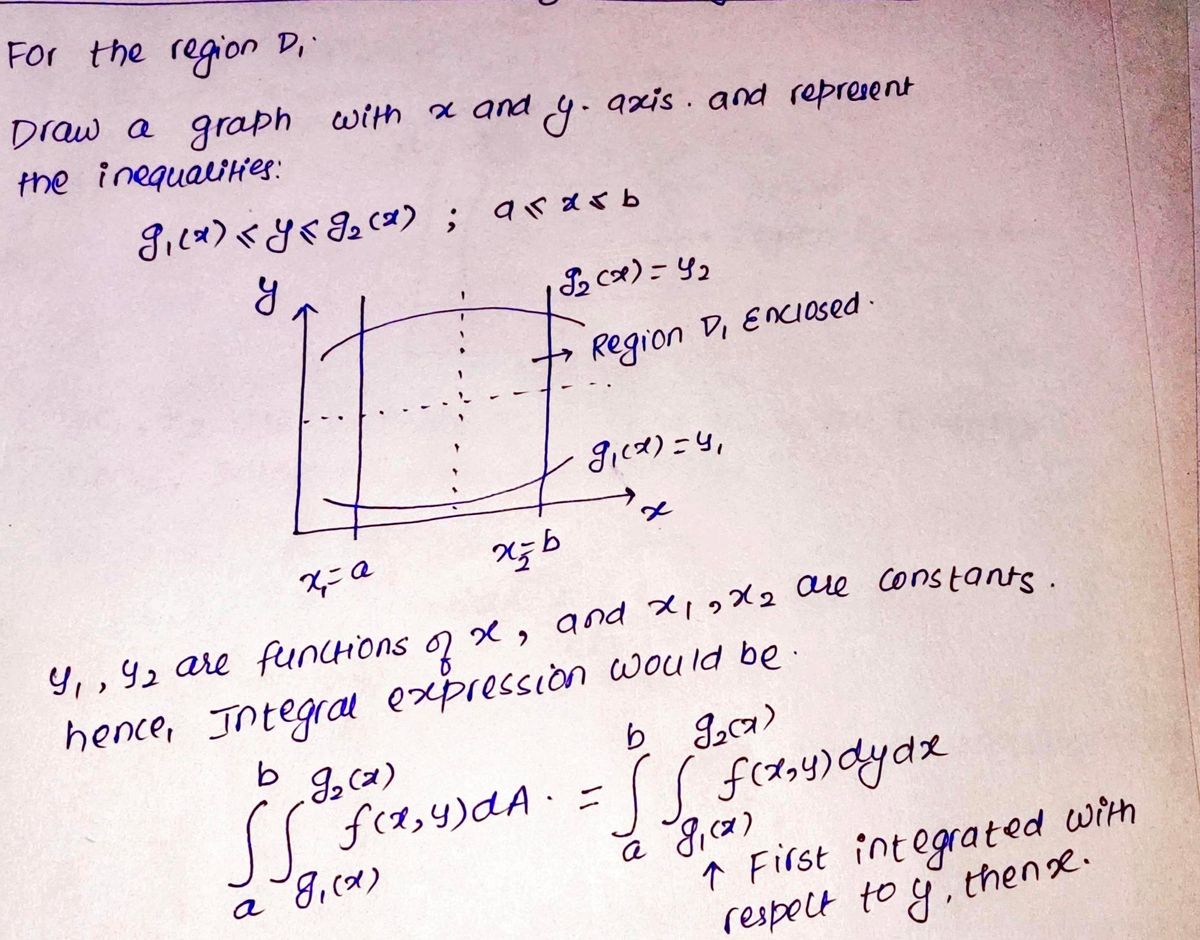 For the region D₁.
Draw a graph with x and y. axis. and represent
the inequalities:
g₁(x) ≤ y ≤ g₂(x) ; a ≤ x ≤ b
y
g₂(x) = y₂
→ Region D₁ Enclosed.
g₁(x) = y₁
x
x₁ = a
x₂ = b
y₁, y₂ are functions of x, and x₁, x₂ are constants.
hence, Integral expression would be.
∫_a^b ∫_{g₁(x)}^{g₂(x)} f(x,y) dA. = ∫_a^b ∫_{g₁(x)}^{g₂(x)} f(x,y) dy dx
↑ First integrated with
respect to y, then x.